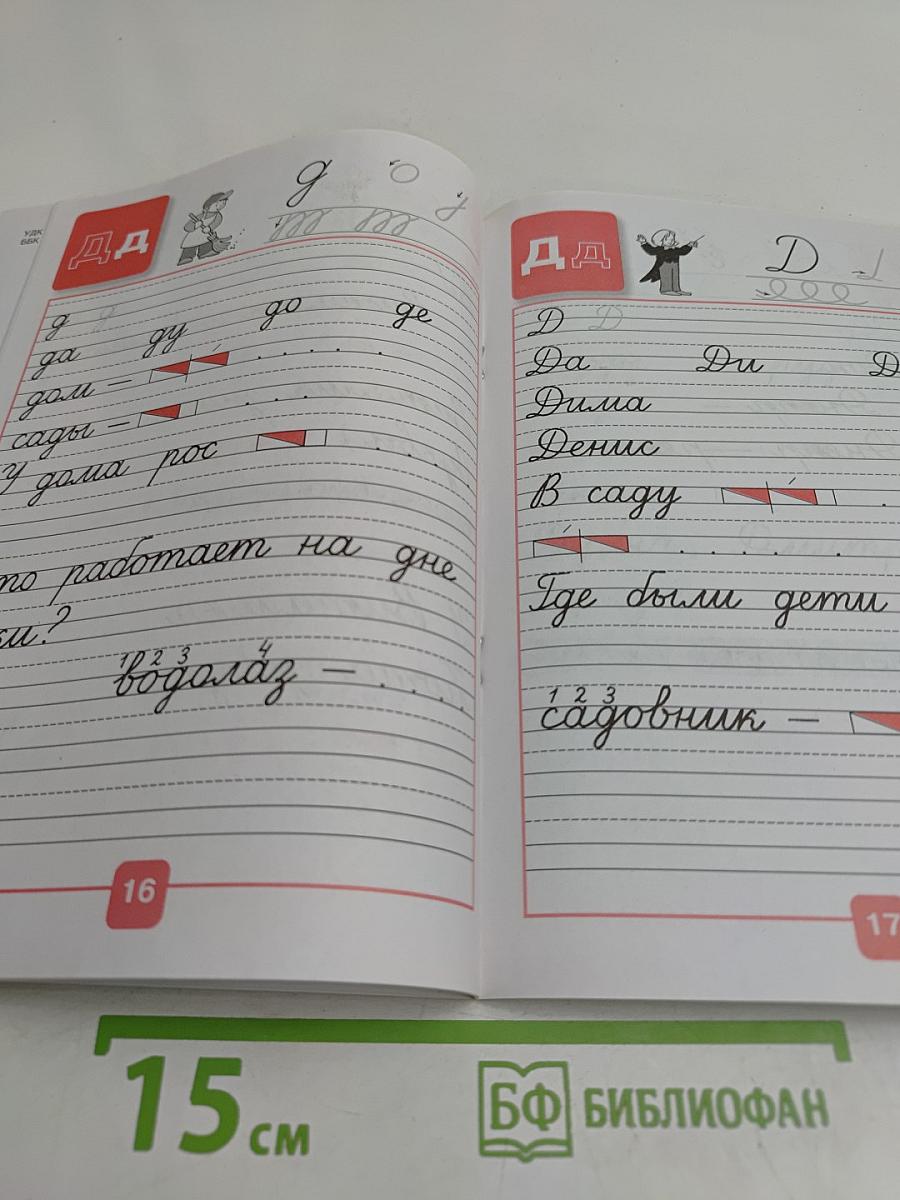 УДК
ББК
Д д
д
д д
да ду до де
дом –
сады –
У дома рос
работает на дне
?
1 2 3 4
водолаз –
16
Д д
Д
Д Д
Да Ди Д
Дима
Денис
В саду
Где были дети
1 2 3
садовник –
17
15 см
БФ БИБЛИОФАН